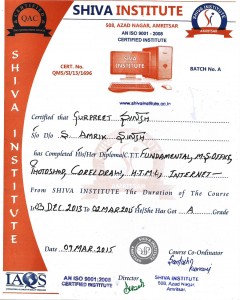 QAC
SHIVA INSTITUTE
508, AZAD NAGAR, AMRITSAR
AN ISO 9001 : 2008
CERTIFIED INSTITUTE
CERT. No.
QMS/SI/13/1696
BATCH No. A
www.shivainstitute.co.in
SHIVA INSTITUTE
Certified that Gurpreet Singh
S/o D/o S. Amrik Singh
has Completed His/Her Diploma/C.T.T. FUNDAMENTAL, M.S.OFFICE,
PHOTOSHOP, CORELDRAW, H.T.M.L, INTERNET
From SHIVA INSTITUTE The Duration of The Course
03 DEC. 2013 To 02 MAR 2015 He/She Has Got A Grade
Date 09 MAR. 2015
Course Co-ordinator
IAQS
AN ISO 9001 - 2008
CERTIFIED INSTITUTE
Director
SHIVA INSTITUTE
508, Azad Nagar
Amritsar.